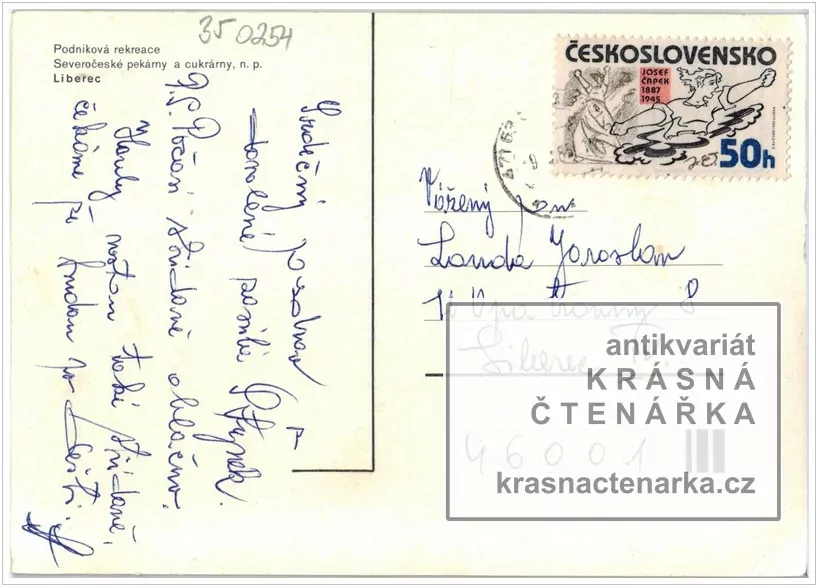 35 0254
Podniková rekreace
Severočeské pekárny a cukrárny, n. p.
Liberec
Srdečný pozdrav z
dovolené posílá
P.S. Počasí střídavě oblačno.
Houby rostou také střídavě,
čekáme až
ČESKOSLOVENSKO
JOSEF
ČAPEK
1887
1945
50h
Vážený pan
Landa Jaroslav
8
Liberec
46001
antikvariát
KRÁSNÁ
ČTENÁŘKA
krasnactenarka.cz